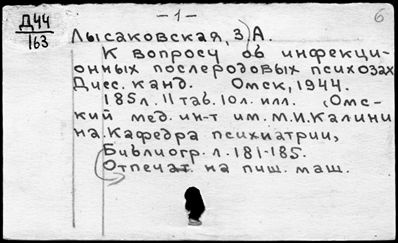 Д44
163
-1-
6
Лысаковская, З.А.
К вопросу об инфекци-
онных послеродовых психозах
Дисс. канд. Омск, 1944.
185л. 11 таб. 10л. илл. (Омс-
кий мед. ин-т им. М.И. Калини
на. Кафедра психиатрии,
Библиогр. л. 181-185.
Отпечат. на пиш. маш.